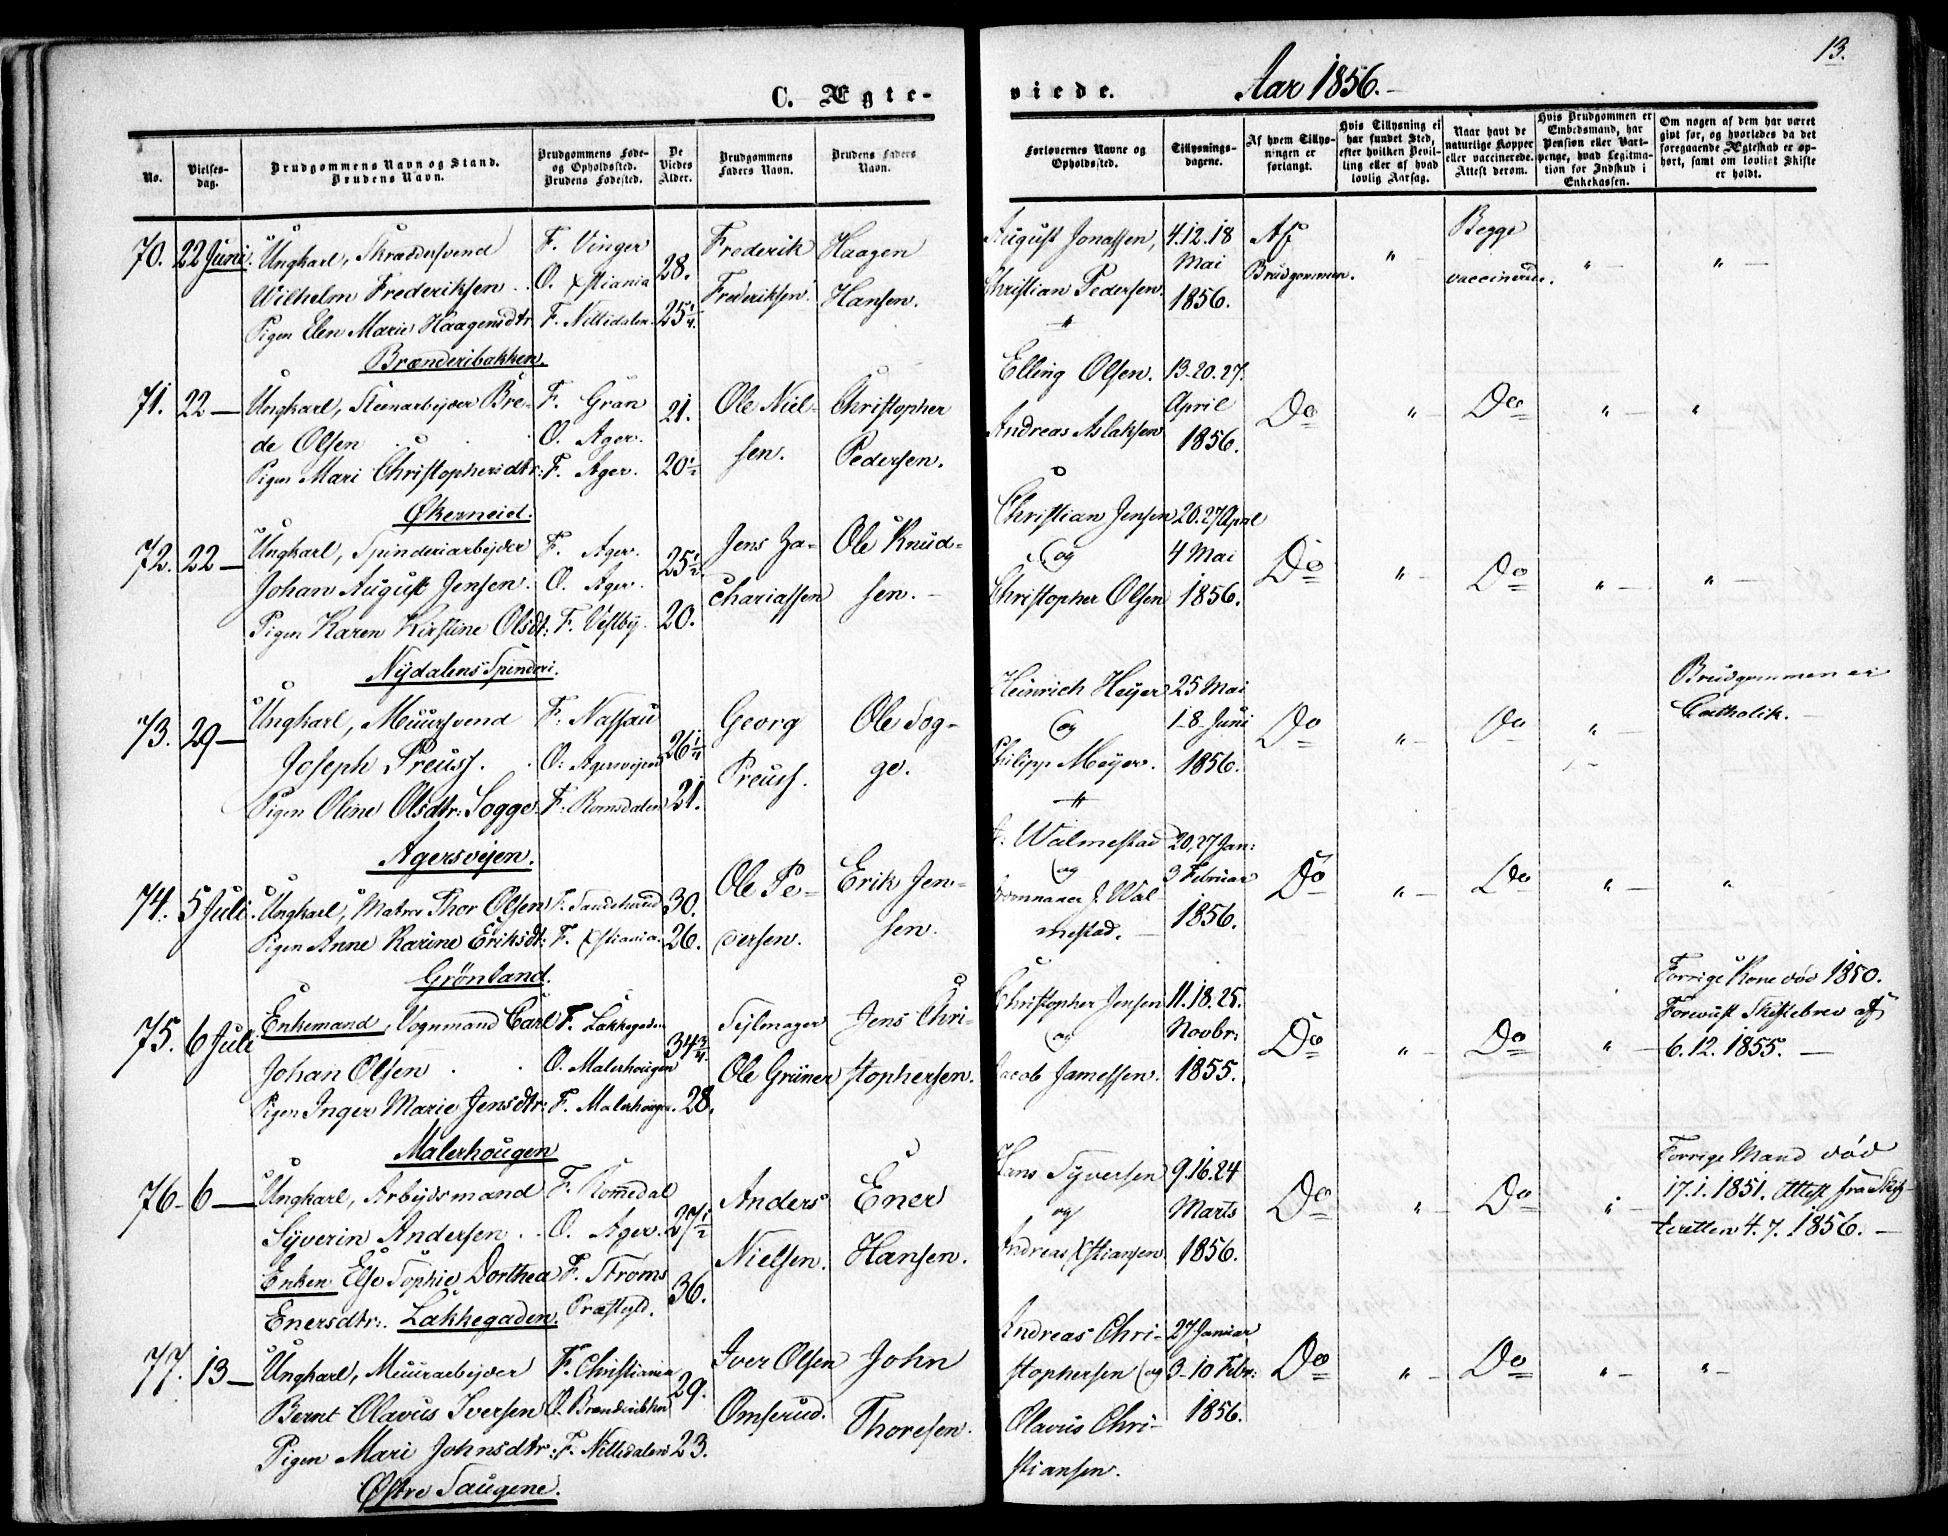 13.
C. Ægte-
viede.
Aar 1856.-
No.
Vielses-
dag.
Brudgommens Navn og Stand.
Brudens Navn.
Brudgommens Føde-
og Opholdssted.
Brudens Fødested.
De
Viedes
Alder.
Brudgommens
Faders Navn.
Brudens Faders
Navn.
Forlovernes Navne og
Opholdssted.
Tillysnings-
dagene.
Af hvem Tillys-
ningen er
forlangt.
Hvis Tillysning ei
har fundet Sted,
efter hvilken Bevil-
ling eller af hvad
lovlig Aarsag.
Naar havt de
naturlige Kopper
eller vaccinerede.
Attest derom.
Hvis Brudgommen er
Embedsmand, har
Pension eller Vart-
penge, hvad Legitima-
tion for Indskud i
Enkekassen.
Om nogen af dem har været
givt før, og hvorledes da det
foregaaende Ægteskab er op-
hørt, samt om lovligt Skifte
er holdt.
70. 22 Juni. Ungkarl, Skræddersvend
Wilhelm Frederiksen
Pigen Elen Marie Haagensdtr
Brænderibakken.
F. Vinger
O. Xstiania
F. Nittedalen.
28.
25 1/4.
Frederik
Frederiksen.
Haagen
Hansen.
August Jonassen,
Christian Pedersen.
4.12.18
Mai
1856.
Af
Brudgommen.
" -
Begge
vaccinerede.
" -
" -
71. 22 - Ungkarl, Steenarbejder Bre-
de Olsen
Pigen Mari Christophersdtr:
Økerneiet.
F. Gran
O. Ager.
F. Ager.
21.
20 1/2
Ole Niel-
sen.
Christopher
Pedersen.
Elling Olsen.
Andreas Aslaksen
13-20-27.
April
1856.
Do
" -
Do
" -
"
72. 22 - Ungkarl, Spinderiarbejder
Johan August Jensen.
Pigen Karen Kirstine Olsdt:
Nydalens Spinderi.
F. Ager.
O. Ager.
F. Vestby.
25 1/2.
20.
Jens Za-
chariassen
Ole Knud-
sen. -
Christian Jensen
og
Christopher Olsen
20.27 April
4 Mai
1856.
Do
" -
Do
" -
" -
73. 29 - Ungkarl, Muursvend
Joseph Preuss.
Pigen Oline Olsdtr: Sogge.
Agersvejen.
F. Nassau
O: Agersvejen
F. Romsdalen
26 1/4
21.
Georg
Preuss.
Ole Sog-
ge.
Heinrich Heyer
og
Philipp Meyer.
25 Mai
1-8- Juni
1856.
Do
" -
Do
" -
Brudgommen er
Catholik. -
74. 5 Juli. Ungkarl, Matros Thor Olsen
Pigen Anne Karine Eriksdt:
Grønland.
F. Sandeherred
F. Xstiania.
30.
26.
Ole Pe-
dersen.
Erik Jen-
sen.
Walmestad
og
J. Wal
mestad.
20,27 Jan:
3 Februar
1856.
Do
" -
Do
" -
"
75. 6 Juli Enkemand, Vognmand Carl
Johan Olsen
Pigen Inger Marie Jensdtr:
Malerhougen
F. Lakkegaden
O. Malerhougen
F. Malerhougen.
34 3/4.
28.
Sejlmager
Ole Grüner
Jens Chri-
stophersen.
Christopher Jensen
og
Jacob Jamessen.
11.18.25.
Novbr:
1855.
Do
" -
Do
" -
Forrige Kone død 1850.
Forevist Skiftebrev af
6.12.1855. -
76- 6 - Ungkarl, Arbejdsmand
Syverin Andersen
Enken Else Sophie Dorthea
Enersdtr: Lakkegaden.
F. Romedal
O. Ager.
F. Strøms
Præstgld.
27 1/2
36.
Anders
Nielsen.
Ener
Hansen.
Hans Syversen
og
Andreas Xstiansen.
9.16.24
Marts
1856.
Do
" -
Do
" -
Forrige Mand død
17.1.1851. Attest fra Skif-
teretten 4.7.1856. -
77. 13 - Ungkarl, Muurarbejder
Bernt Olavus Iversen
Pigen Mari Johnsdtr:
Østre Saugene.
F. Christiania
O. Brænderibkn
F. Nittedalen
29.
23.
Iver Olsen
Omserud.
John
Thoresen.
Andreas Chri-
stophersen og
Olavus Chri-
stiansen.
27 Januar
3-10 Febr:
1856.
Do
" -
Do
" -
" -